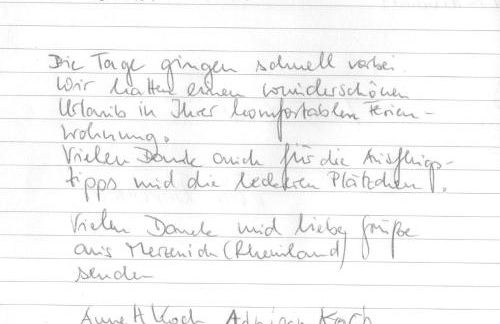 Die Tage gingen schnell vorbei.
Wir hatten einen wunderschönen
Urlaub in Ihrer komfortablen Ferien-
wohnung.
Vielen Dank auch für die Ausflugs-
tipps und die leckeren Plätzchen.
Vielen Dank und liebe Grüße
aus Merzenich (Rheinland)
senden
Koch